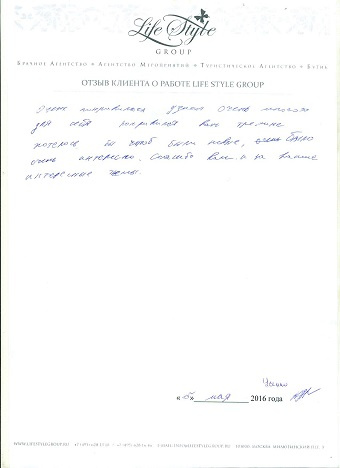 Life Style
GROUP
Брачное Агентство • Агентство Мероприятий • Туристическое Агентство • Бутик
ОТЗЫВ КЛИЕНТА О РАБОТЕ LIFE STYLE GROUP
понравилось узнала очень много
для себя понравился ваш тренинг
хотелось бы чтоб были новые, очень было
очень интересно. Спасибо вам и за ваши
интересные темы.
« 5 » мая 2016 года
WWW.LIFESTYLEGROUP.RU